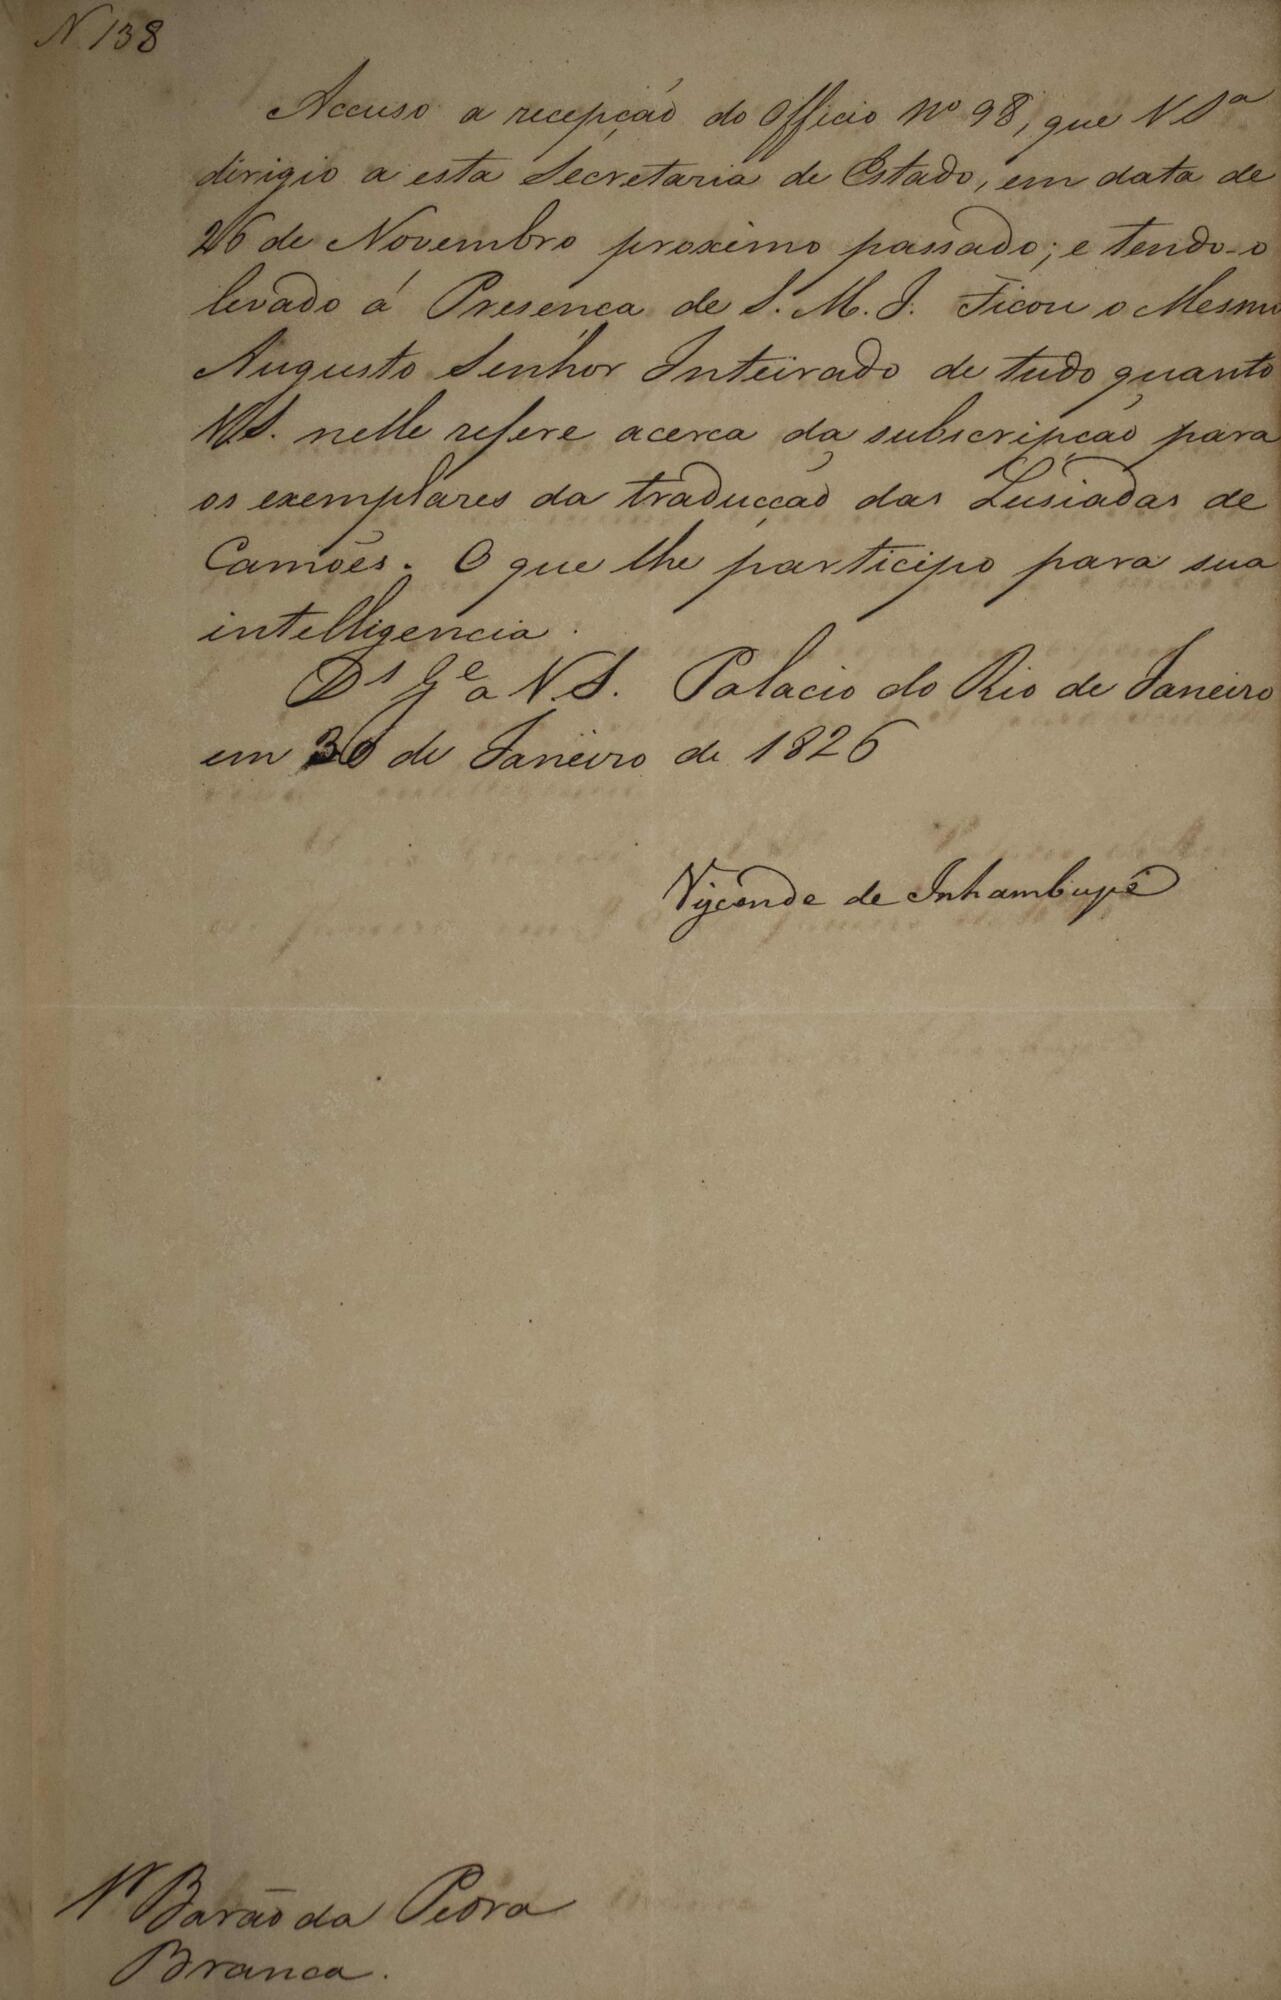 N. 138
Accuso a recepção do Officio Nº 98, que V Sª
dirigio a esta Secretaria de Estado, em data de
26 de Novembro proximo passado; e tendo-o
levado á Presença de S. M. I. Ficou o Mesmo
Augusto Senhor Inteirado de tudo quanto
V S. nelle refere acerca da subscripção para
os exemplares da traducção das Lusiadas de
Camões. O que lhe participo para sua
intelligencia.
Ds Ge a V. S. Palacio do Rio de Janeiro
em 30 de Janeiro de 1826
Visconde de Inhambupe
Barão da Pedra
Branca.